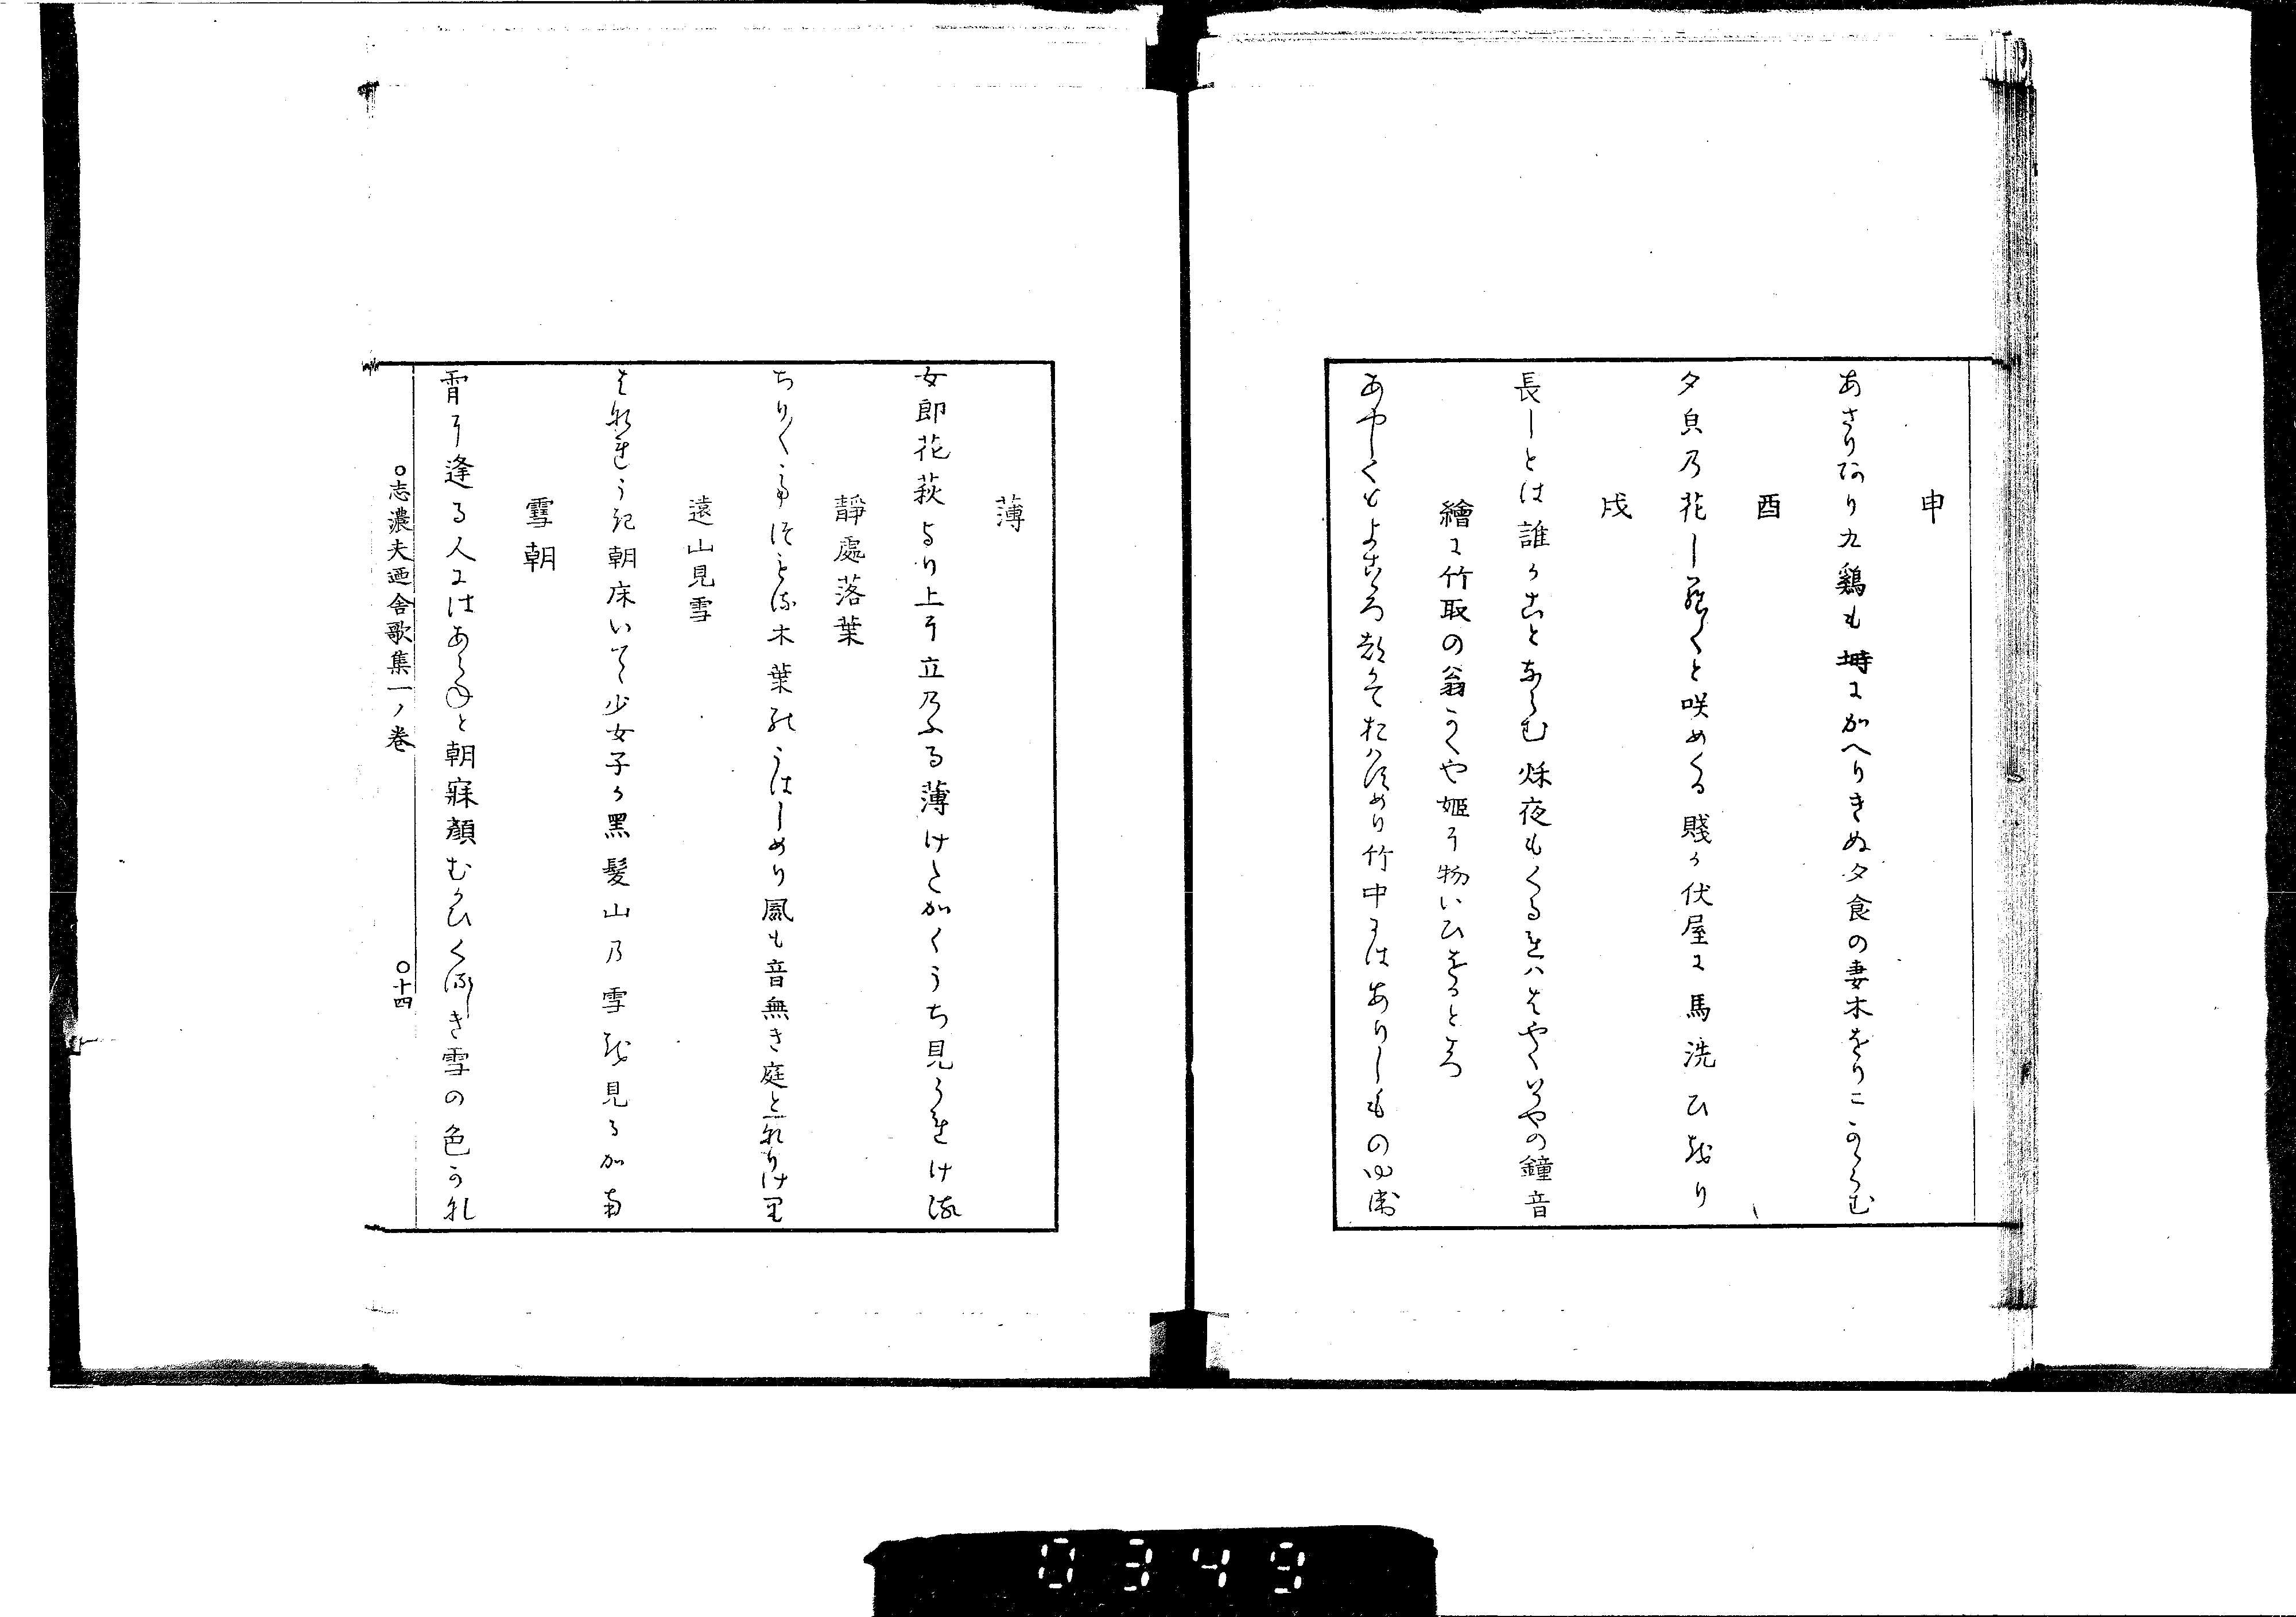 申
あさりありた鶏も塒にかへりきぬ夕食の妻木をりこかくらむ
酉
夕皃乃花しらしらと咲めくる賤か伏屋に馬洗ひをり
戌
長しとは誰かことならむ烁夜もくるれハはやくいるやの鐘音
繪に竹取の翁かくや姫に物いひをるところ
あやしくもよころ都かておハすめり竹中にはありしものゆゑ
薄
女郎花萩より上に立乃ふる薄けたかくうち見られける
靜處落葉
ちりちりてつもる木葉のうはしめり風も音無き庭となりけり
遠山見雪
はなれうき朝床いてゝ少女子か黑髪山乃雪を見るかな
雪朝
宵に逢る人にはあらねと朝寐顏むかひくるしき雪の色かな
○志濃夫廼舍歌集一ノ卷 ○十四
0349